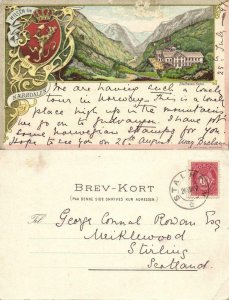 HILSEN FRA
NÆRØDALEN
25th July
We are having such a lovely
tour in Norway. This is a lovely
place high up in the mountains
we go on to
I have got
some Norwegian stamps for you
Hope to see you on 26th August
BREV-KORT
(PAA DENNE SIDE SKRIVES KUN ADRESSEN)
Til
George Connal Rowan Esq
Meiklewood
Stirling
Scotland.
STALH